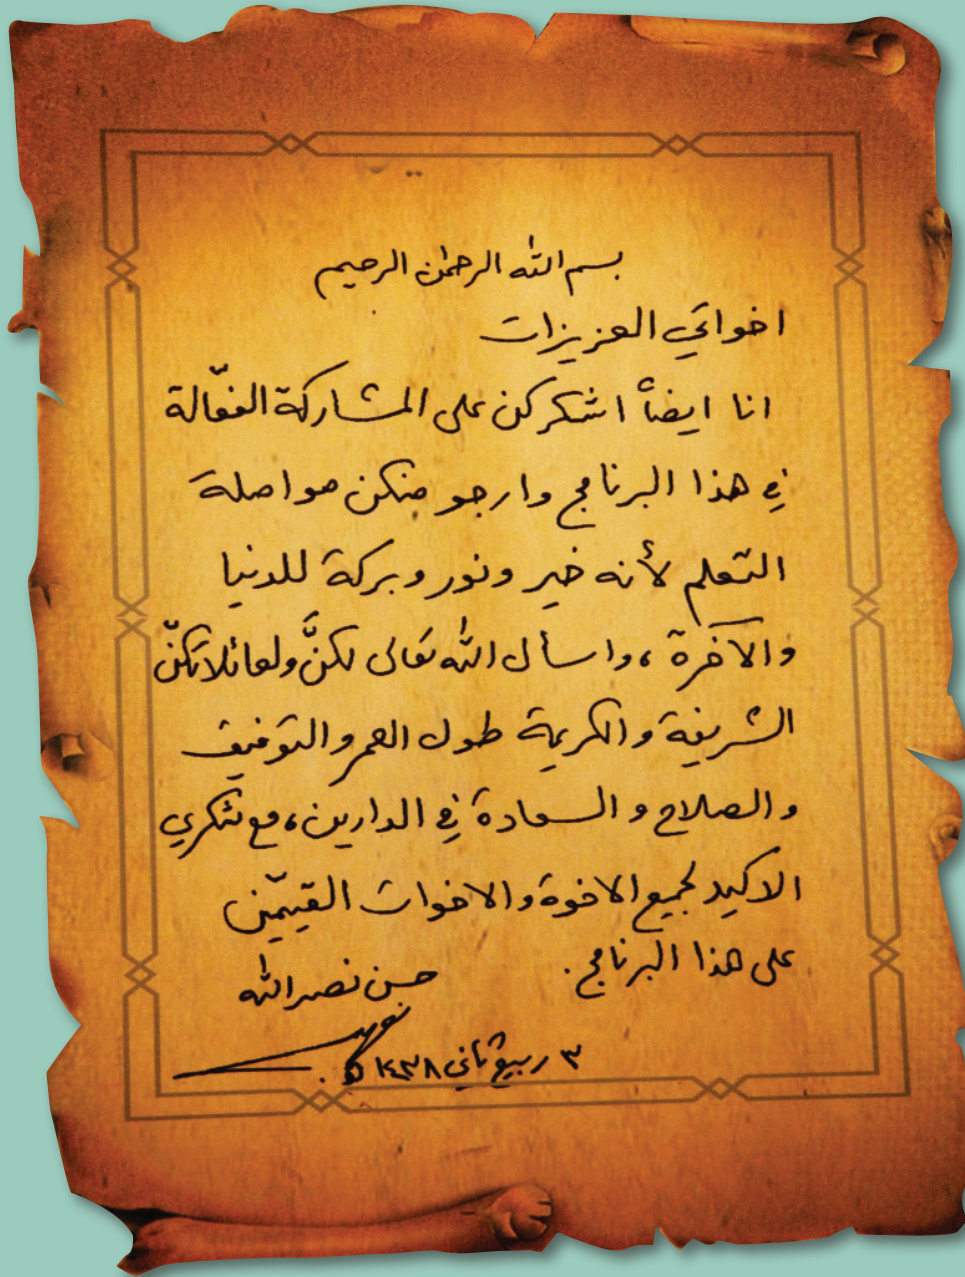 بسم الله الرحمٰن الرحيم
اخواتي العزيزات
انا ايضاً اشكركن على المشاركة الفعّالة
في هذا البرنامج وارجو منكن مواصلة
التعلم لأنه خير ونور وبركة للدنيا
والآخرة ، واسأل الله تعالى لكنَّ ولعائلاتكنّ
الشريفة والكريمة طول العمر والتوفيق
والصلاح والسعادة في الدارين، مع شكري
الاكيد لجميع الاخوة والاخوات القيّمين
على هذا البرنامج .
حسن نصرالله
٣ ربيع ثاني ١٤٣٨ ه